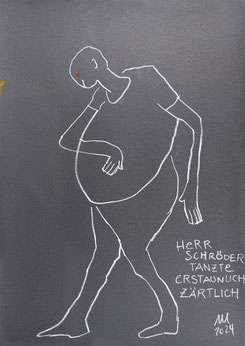 HERR
SCHRÖDER
TANZTE
ERSTAUNLICH
ZÄRTLICH
2024